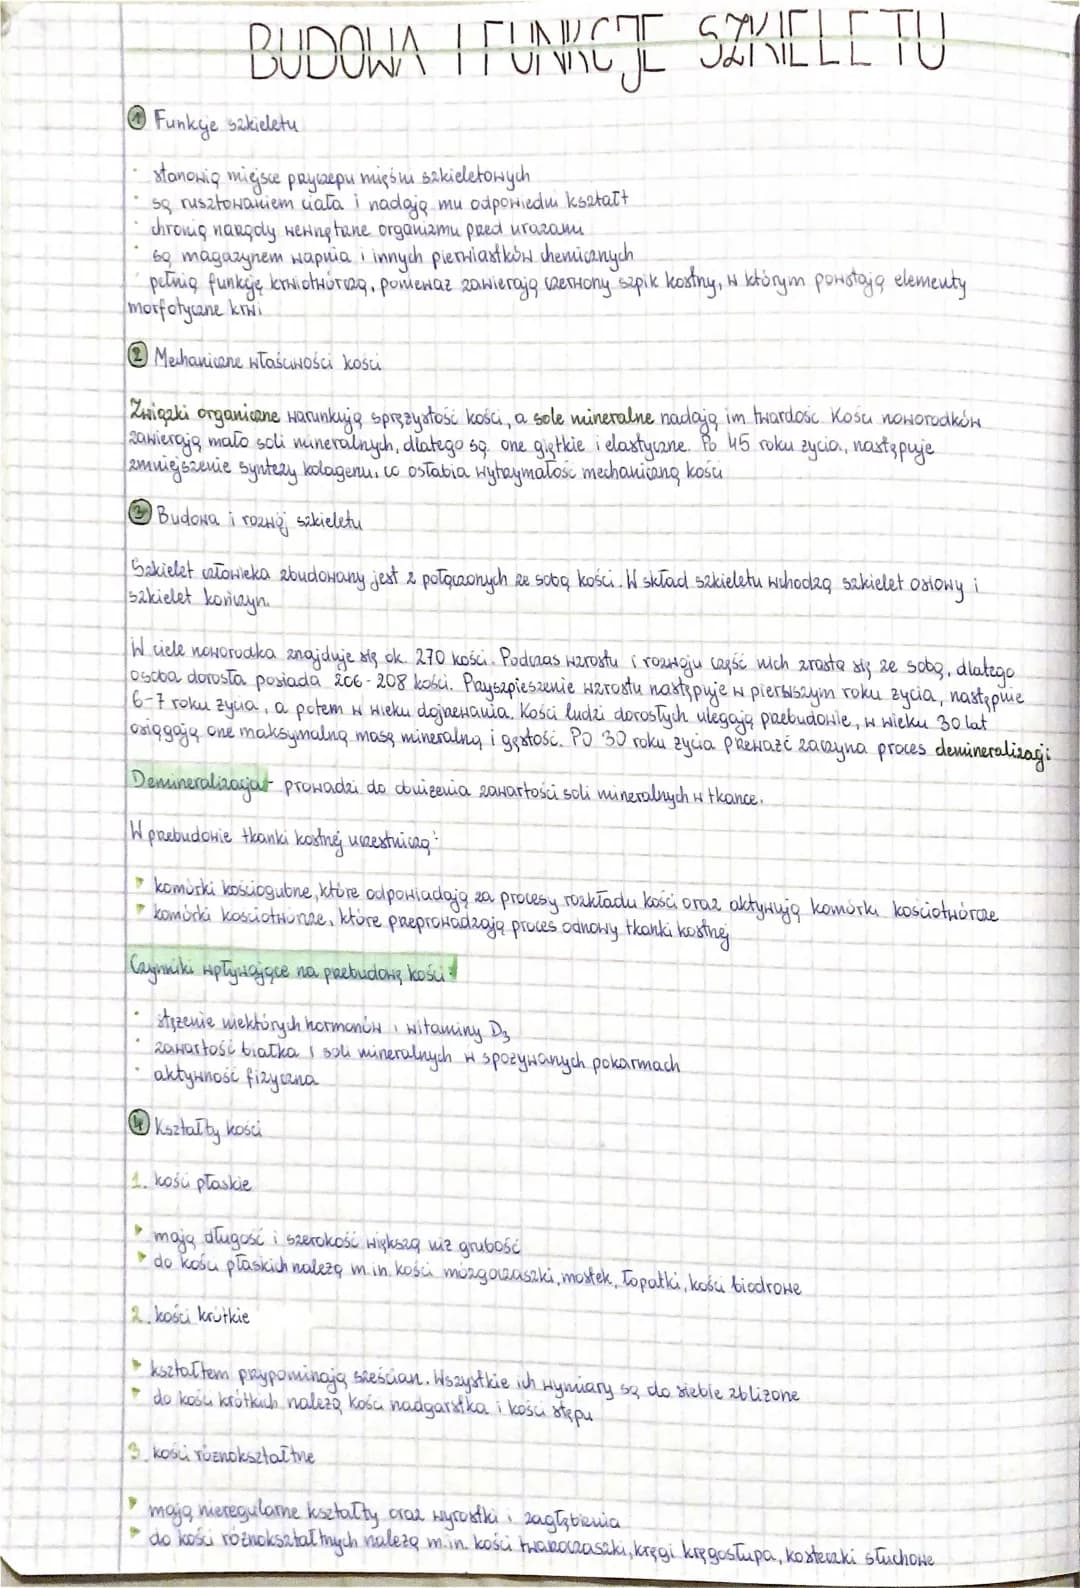 BUDOWA I FUNKCJE SZKIELETU
① Funkcje szkieletu
· stanowią miejsce przyczepu mięśni szkieletowych
· są rusztowaniem ciała i nadają mu odpowiedni kształt
· chronią narządy wewnętrzne organizmu przed urazami
· są magazynem wapnia i innych pierwiastków chemicznych
· pełnią funkcję krwiotwórczą, ponieważ zawierają czerwony szpik kostny, w którym powstają elementy
morfotyczne krwi
② Mechaniczne właściwości kości
Związki organiczne warunkują sprężystość kości, a sole mineralne nadają im twardość. Kości noworodków
zawierają mało soli mineralnych, dlatego są one giętkie i elastyczne. Po 45 roku życia, następuje
zmniejszenie syntezy kolagenu, co osłabia wytrzymałość mechaniczną kości
③ Budowa i rozwój szkieletu
Szkielet człowieka zbudowany jest z połączonych ze sobą kości. W skład szkieletu wchodzą szkielet osiowy i
szkielet kończyn.
W ciele noworodka znajduje się ok. 270 kości. Podczas wzrostu i rozwoju część nich zrasta się ze sobą, dlatego
osoba dorosła posiada 206-208 kości. Przyszpieszenie wzrostu następuje w pierwszym roku życia, następnie
6-7 roku życia, a potem w wieku dojrzewania. Kości ludzi dorosłych ulegają przebudowie, w wieku 30 lat
osiągają one maksymalną masę mineralną i gęstość. PO 30 roku życia przeważć zaczyna proces demineralizacji
Demineralizacja - prowadzi do obniżenia zawartości soli mineralnych w tkance.
W przebudowie tkanki kostnej uczestniczą:
▸ komórki kościogubne, które odpowiadają za procesy rozkładu kości oraz aktywują komórki kościotwórcze
▸ komórki kościotwórcze, które przeprowadzają proces odnowy tkanki kostnej
Czynniki wpływające na przebudowę kości:
· stężenie niektórych hormonów i witaminy D₃
· zawartość białka i soli mineralnych w spożywanych pokarmach
· aktywność fizyczna
④ Kształty kości
1. kości płaskie
▸ mają długość i szerokość większą niż grubość
▸ do kości płaskich należą m.in. kości mózgoczaszki, mostek, łopatki, kości biodrowe
2. kości krótkie
▸ kształtem przypominają sześcian. Wszystkie ich wymiary są do siebie zbliżone
▸ do kości krótkich należą kości nadgarstka i kości stępu
3. kości różnokształtne
▸ mają nieregularne kształty oraz wyrostki i zagłębienia
▸ do kości różnokształtnych należą m.in. kości twarzoczaszki, kręgi kręgosłupa, kosteczki słuchowe